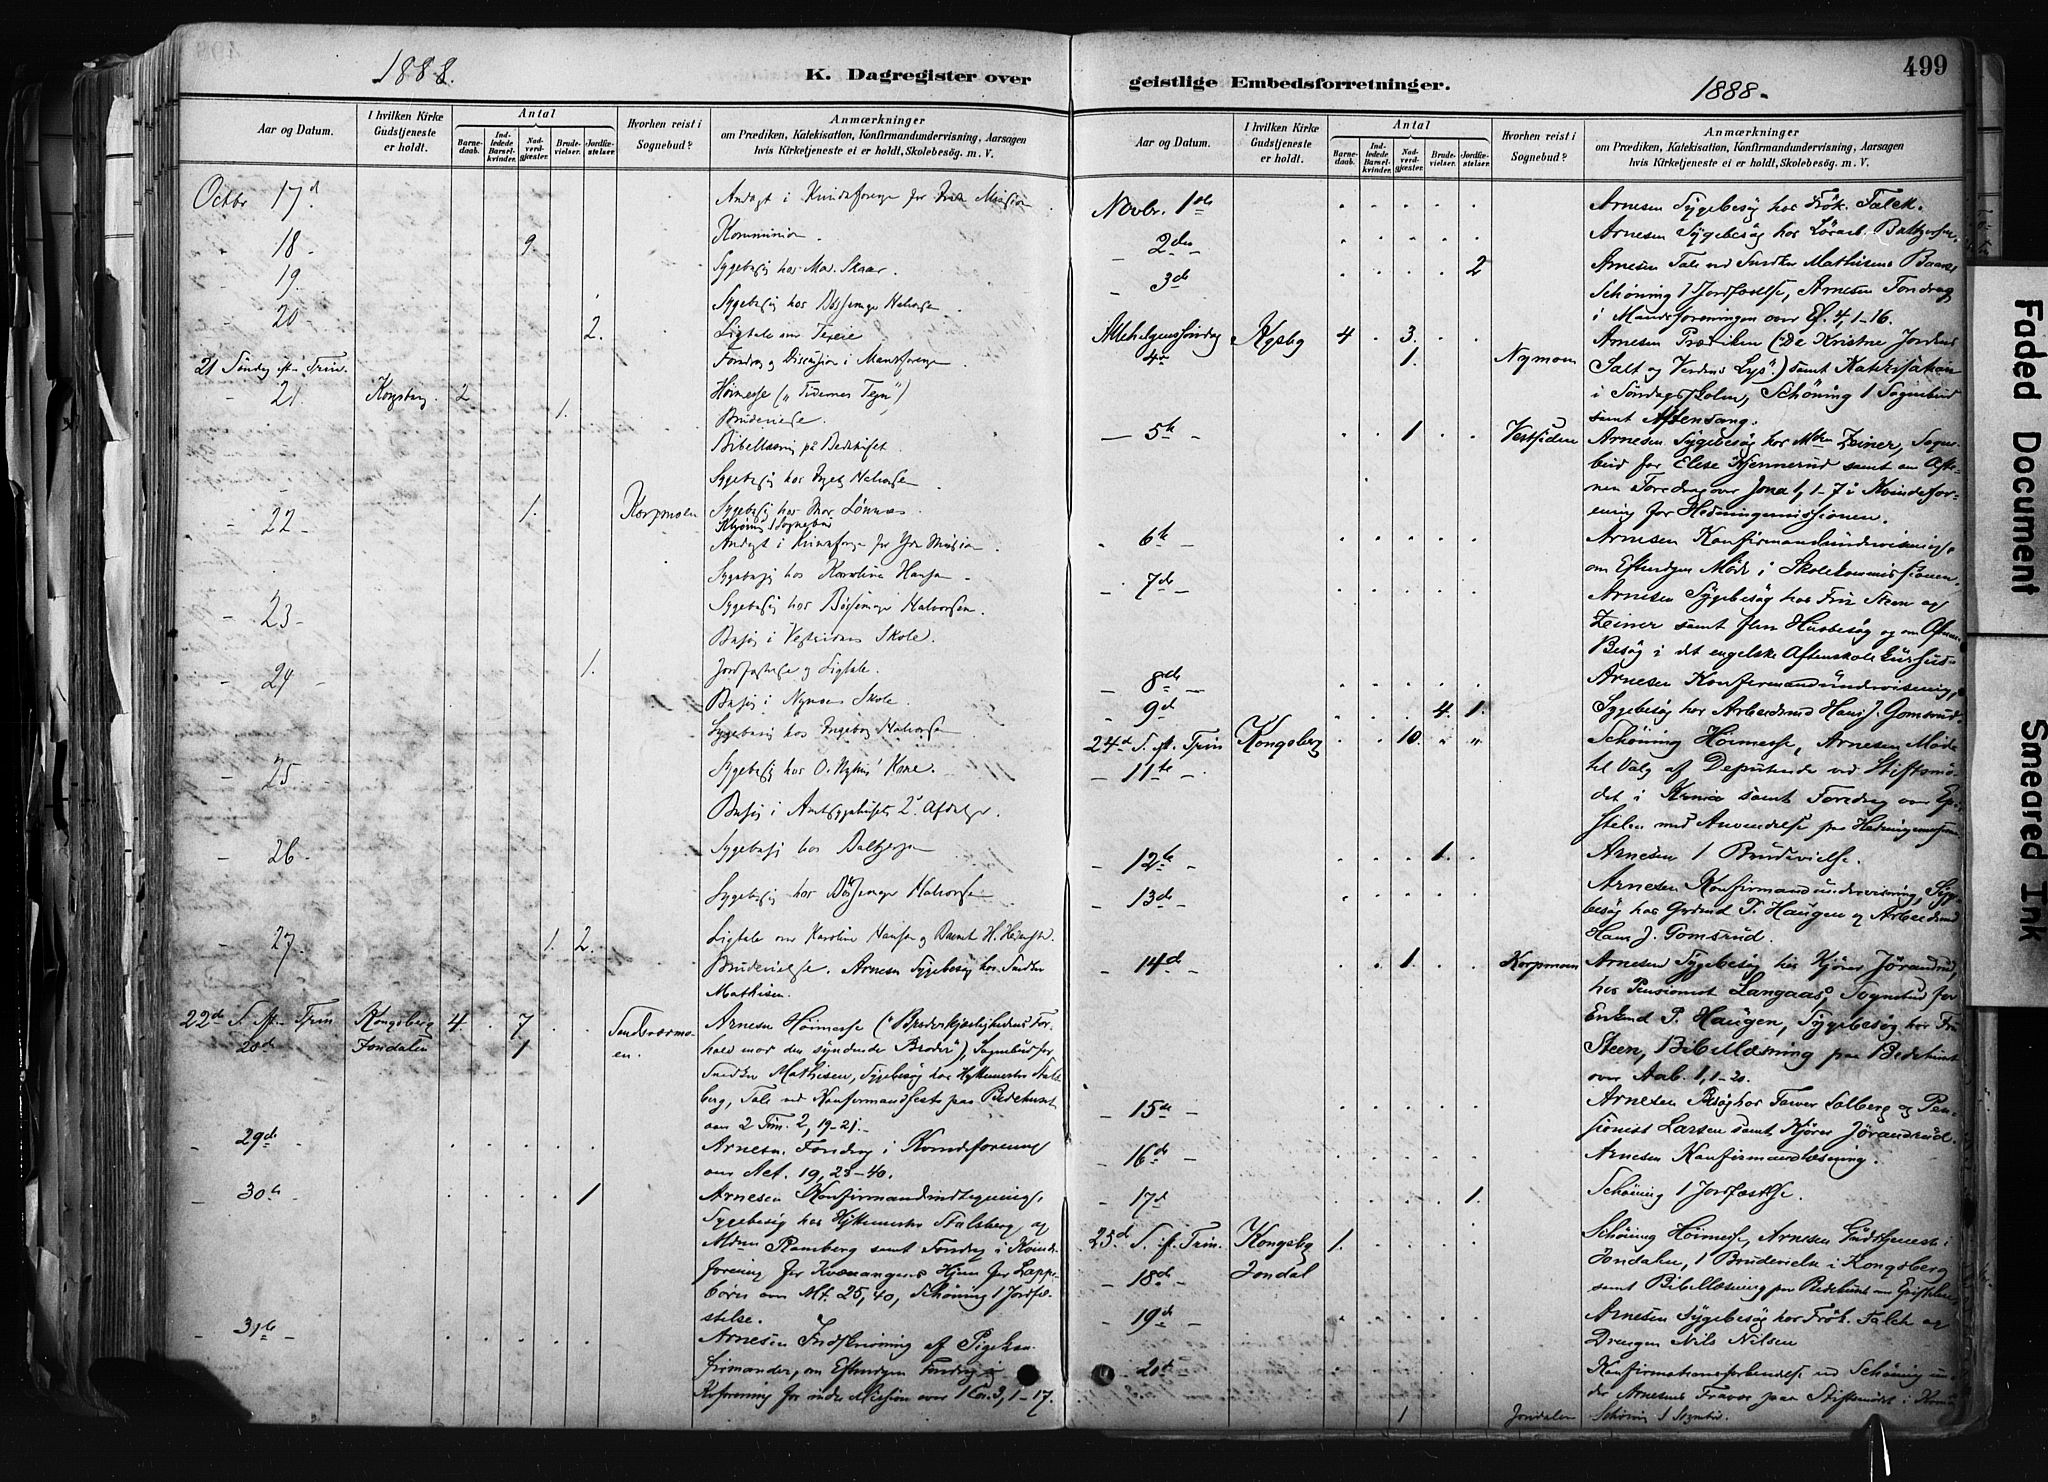 1888.
K. Dagregister over
geistlige Embedsforretninger.
1888.
499
Aar og Datum.
I hvilken Kirke Gudstjeneste er holdt.
Antal
Barnedaab.
Indledede Barselkvinder.
Nadverdgjæster.
Brudevielser.
Jordfæstelser.
Hvorhen reist i Sognebud?
Anmærkninger
om Prædiken, Katekisation, Konfirmandundervisning, Aarsagen
hvis Kirketjeneste ei er holdt, Skolebesög. m. V.
Octbr 17d Andagt i Kvindeforening for Mission
18 9 Kommunion.
19. Sygebesøg hos Mad. Skaar.
Sygebesøg hos Halvorsen
20 2. Ligtale over
21 Søndag eft. Trin. Foredrag og Discussion i Mandsforening
21. Kongsberg 2 Høimesse („Tidernes Tegn")
1. Brudevielse.
Bibellæsning på Bedehuset
Sygebesøg hos Halvorsen
22 1. Korpmoen Sygebesøg hos Mor. Lønnæs.
Schøning 1 Sognebud
Andagt i Kvindeforening for Ydre Mission
Sygebesøg hos Karoline Hansen
23. Sygebesøg hos Halvorsen.
Besøg i Vestsidens Skole.
24 1. Jordfæstelse og Ligtale.
Besøg i Nymoens Skole.
Sygebesøg hos Ingeborg Halvorsen
25 Sygebesøg hos O. Kone.
Besøg i Amtssygehusets 2den Afdeling.
26 Sygebesøg hos
Sygebesøg hos Halvorsen
27 1. 2. Ligtale over Karoline Hansen og Barnet H.
Brudevielse. Arnesen Sygebesøg hos Snedker
Mathisen.
22de S. eft. Trin Kongsberg 4 7 Sandsværmo- Arnesen Høimesse („Broderkjærlighedens For-
28d Jondalen 1 en. hold mod den syndende Broder"), Sognebud for
Snedker Mathisen, Sygebesøg hos Hyttemester Stals-
berg, Tale ved Konfirmandfest paa Bedehuset
over 2 Tim. 2, 19-21.
29de Arnesen Foredrag i Kvindeforening
over Act. 19, 23-40.
30te 1 Arnesen Konfirmandindtegning.
Sygebesøg hos Hyttemester Stalsberg og
Mdm Ramberg samt Foredrag i Kvinde-
forening for Kvænangens Hjem for Lappe-
børn over Mt. 25, 40, Schøning 1 Jordfæ-
stelse.
31te Arnesen Indskrivning af Pigekon-
firmander, om Eftermdgen Foredrag i
Kvforening for indre Mission over 1 Cor. 3, 1-17.
Aar og Datum.
I hvilken Kirke Gudstjeneste er holdt.
Antal
Barnedaab.
Indledede Barselkvinder.
Nadverdgjæster.
Brudevielser.
Jordfæstelser.
Hvorhen reist i Sognebud?
Anmærkninger
om Prædiken, Katekisation, Konfirmandundervisning, Aarsagen
hvis Kirketjeneste ei er holdt, Skolebesög. m. V.
Novbr. 1ste Arnesen Sygebesøg hos Frøk. Falck.
2den Arnesen Sygebesøg hos Lørarb. Baltzersen.
3de 2 Arnesen Tale ved Snedker Mathisens Baare,
Schøning 1 Jordfæstelse, Arnesen Foredrag
i Mandsforeningen over Ef. 4, 1-16.
Allehelgenssöndag Kgsbg 4 3. Arnesen Prædiken („De Kristne Jordens
4de 1. Nymoen Salt og Verdens Lys") samt Katekisation
i Søndagsskolen, Schøning 1 Sognebud
samt Aftensang.
5te 1 Vestsiden Arnesen Sygebesøg hos Mdm Zeiner, Sogne-
bud for Elise Kjennerud samt om Afte-
nen Foredrag over Jona 1, 1-7 i Kvindefor-
ening for Hedningemissionen.
6te Arnesen Konfirmandundervisning,
om Eftermdgen Møde i Skolekommissionen.
7de Arnesen Sygebesøg hos Fru Steen og
Zeiner samt flere Husbesøg og om Aftenen
Besøg i det engelske Aftenskole
8de Arnesen Konfirmandundervisning,
9de 4. 1. Sygebesøg hos Arbeidsmd Hans J. Gomsrud.
24de S. eft. Trin Kongsberg 10. Schøning Høimesse, Arnesen Møde
11te til Valg af Deputerede ved Stiftsmø-
det i Krnia samt Foredrag over Epi-
stelen med Anvendelse paa Hedningemissionen
12te 1. Arnesen 1 Brudevielse.
13de Arnesen Konfirmandundervisning, Syge-
besøg hos P. Haugen og Arbeidsmd
Hans J. Gomsrud.
14de 1. Korpmoen Arnesen Sygebesøg hos Kjører Jørandrud,
hos Pensionist Langaas, Sognebud for
Enkemd P. Haugen, Sygebesøg hos Fru
Steen, Bibellæsning paa Bedehuset
over Aab. 1, 1-20.
15de Arnesen Besøg hos Farver Solberg og Pen-
sionist Larsen samt Kjører Jørandrud.
16de Arnesen Konfirmandlæsning.
17d 1. Schøning 1 Jordfæstelse.
25de S. eft. Trin. Kongsbg 1. Schøning Høimesse, Arnesen Gudstjeneste i
18de Jondal Jondalen, 1 Brudevielse i Kongsberg
samt Bibellæsning paa Bedehuset over Epistelen,
19de Arnesen Sygebesøg hos Frøk. Falck og
Drengen Nils Nilsen
20de Konfirmationsforberedelse ved Schøning un-
der Arnesens Fravær paa Stiftsmødet i Krnia
1 Jondalen Schøning 1 Sognebud.
Faded Document
Smeared Ink